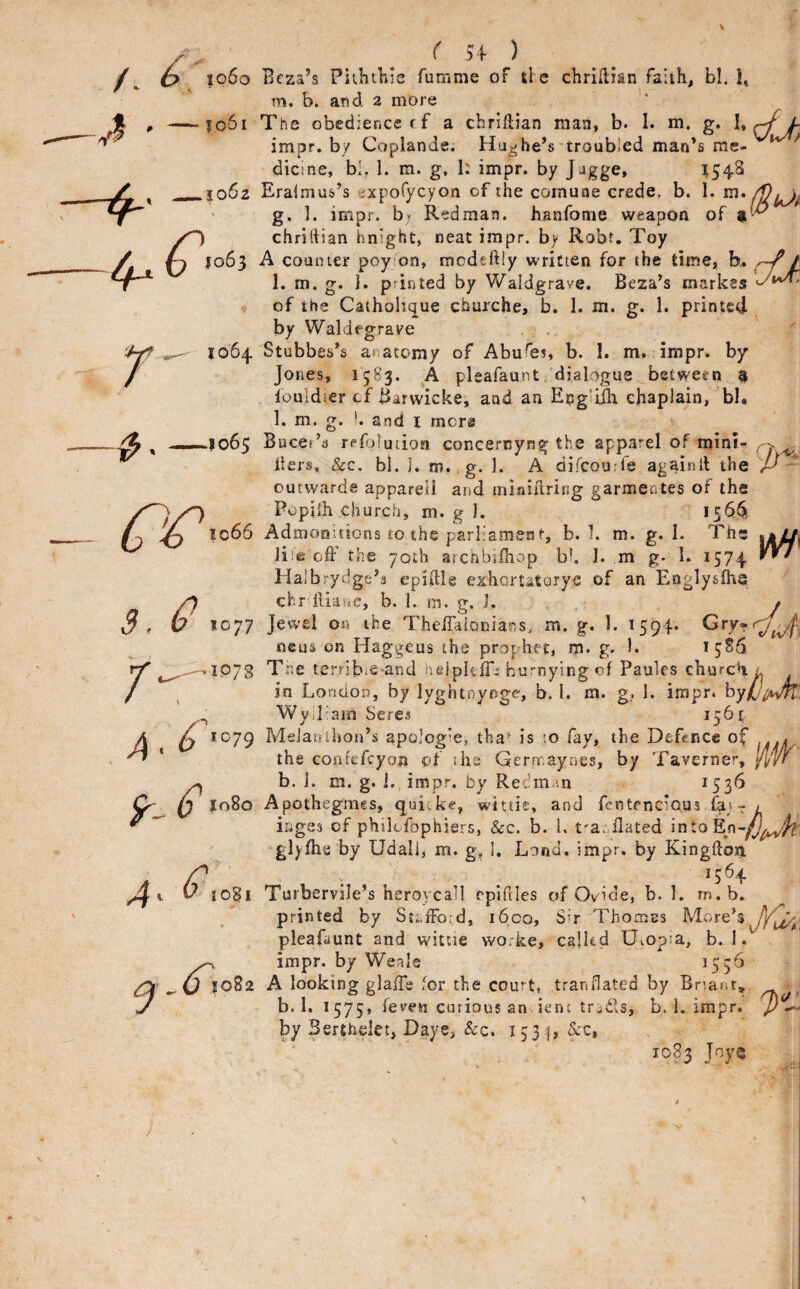 ( 54 )
1. 6 1060 Beza's Piththie ſumme of the chriſtian faith, bl. l,
m. b. and 2 more
3 . — 1061 The obedience of a chriſtian man, b. l. m. g. l,
impr. by Coplande. Hughe's troubled man's me-
dicine, bl. l. m. g. l. impr. by Jugge, 1548
4. — 1062 Eraſmus's expoſycyon of the comune crede, b. l. m.
g. l. impr. by Redman. hanſome weapon of a
chriſtian knight, neat impr. by Robt. Toy
4. 6 1063 A counter poyſon, modeſtly written for the time, b.
l. m. g. l. printed by Waldgrave. Beza's markes
of the Catholique churche, b. l. m. g. l. printed
by Waldegrave
7 — 1064 Stubbes's anatomy of Abuſes, b. l. m. impr. by
Jones, 1583. A pleaſaunt dialogue between a
ſouldier of Barwicke, and an Engliſh chaplain, bl.
l. m. g. l. and 1 more
— 1065 Bucer's reſolution concernyng the apparel of mini-
ſters, &c. bl. l. m. g. l. A diſcourſe againſt the
outwarde apparell and miniſtring garmentes of the
Popiſh church, m. g l. 1566
1066 Admonitions to the parliament, b. l. m. g. l. The
life off the 70th archbiſhop bl. l. m g. l. 1574
Halbrydge's epiſtle exhortatorye of an Englyſhe
chriſtiane, b. l. m. g. l.
3. 6 1077 Jewel on the Theſſalonians, m. g. l. 1594. Gry-
neus on Haggeus the prophet, m. g. l. 1586
7 — 1078 The terrible and helpleſſe burnying of Paules church
in London, by lyghtnynge, b. l. m. g. l. impr. by
Wylliam Seres 1561
4. 6 1079 Melanthon's apologie, that is to ſay, the Defence of
the confeſcyon of the Germaynes, by Taverner,
b. l. m. g. l. impr. by Redman 1536
6 1080 Apothegmes, quicke, wittie, and ſentencious ſay-
inges of philoſophiers, &c. b. l. tranſlated into En-
glyſhe by Udall, m. g. l. Lond. impr. by Kingſton
1564
4. 6 1081 Turbervile's heroycall epiſtles of Ovide, b. l. m. b.
printed by Stafford, 1600, Sir Thomas More's
pleaſaunt and wittie worke, called Utopia, b. l.
impr. by Weale 1556
9 - 6 1082 A looking glaſſe for the court, tranſlated by Briant,
b. l. 1575, ſeven curious ancient tracts, b. l. impr.
by Berthelet, Daye, &c. 1534, &c,
1083 Joye